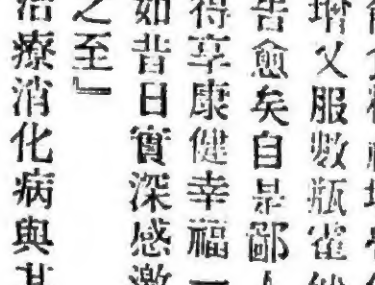 增又服數瓶霍
皆愈矣自是鄙
得享康健幸福一
如昔日實深感激
之至』
治療消化病與其